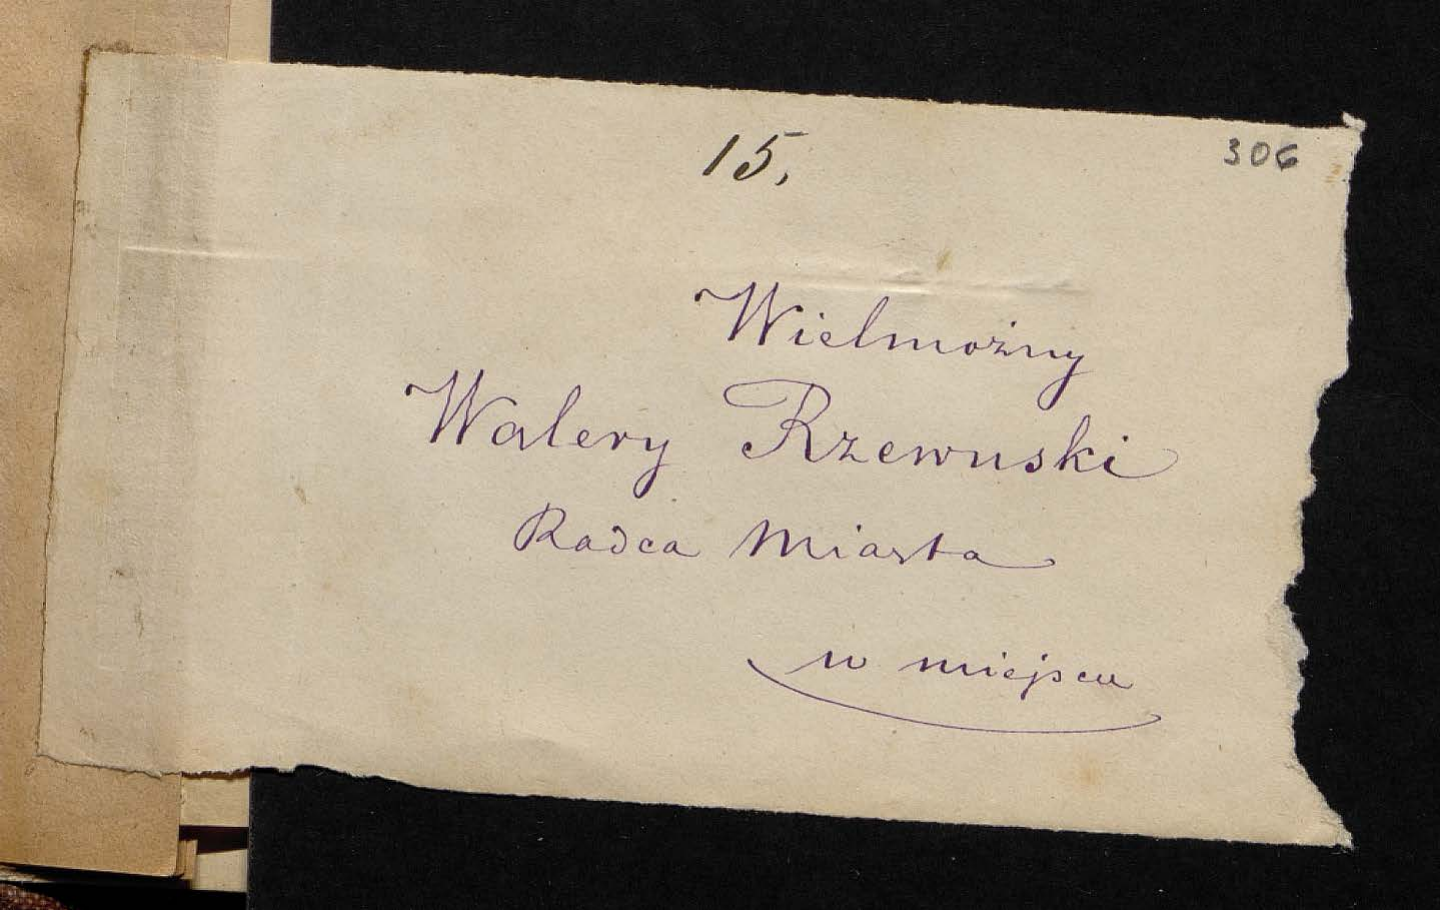 15,
306
Wielmożny
Walery Rzewuski
Radca Miasta
w miejscu